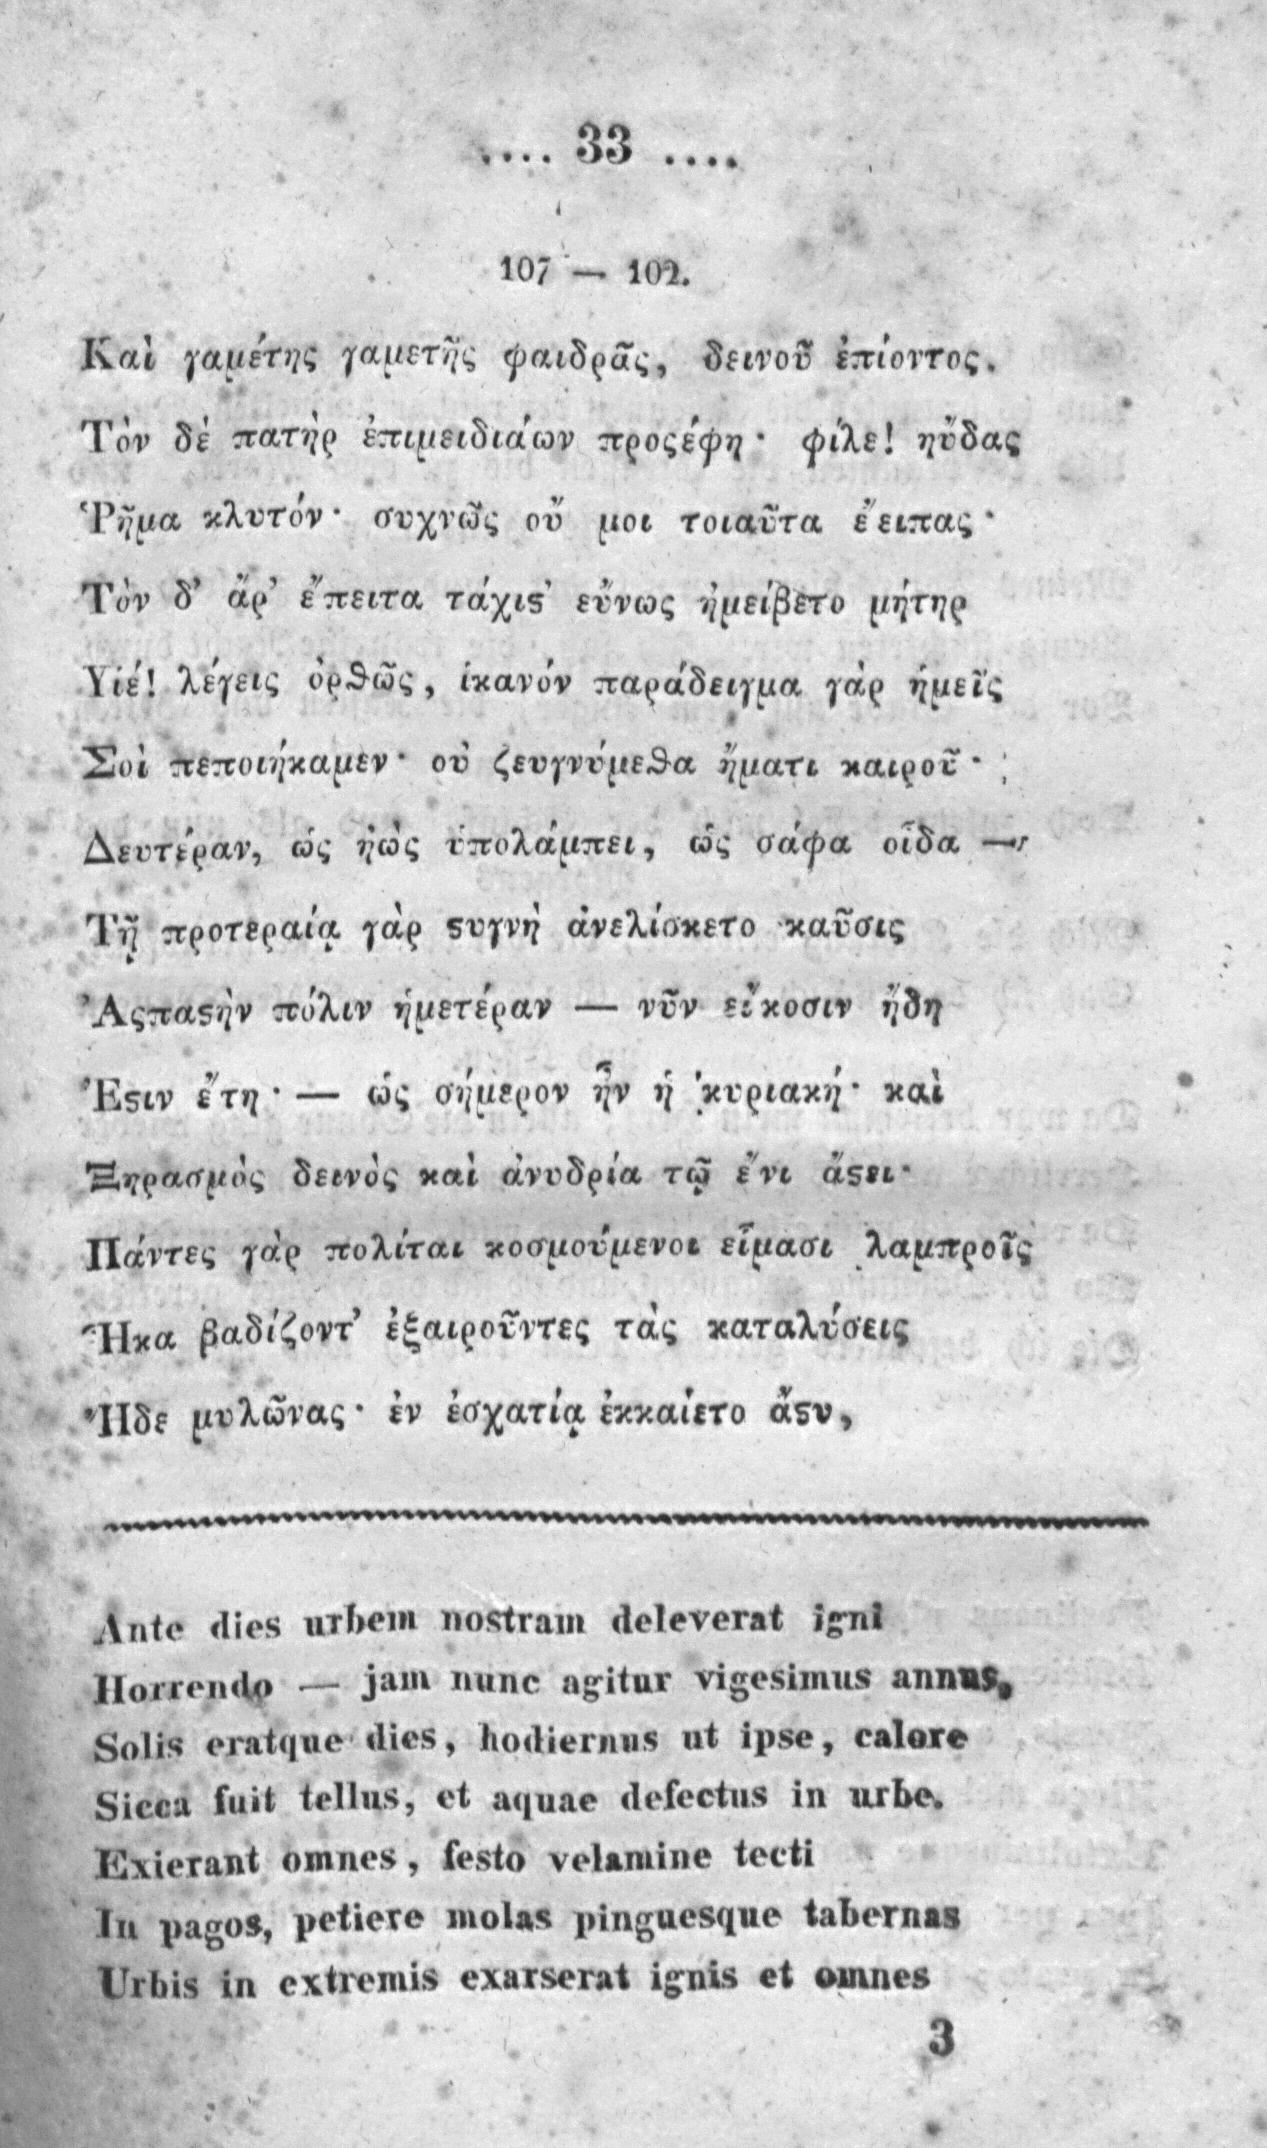 .... 33 ....
107 — 102.
Καὶ γαμέτης γαμετῆς φαιδρᾶς, δεινοῦ ἐπίοντος.
Τὸν δέ πατὴρ ἐπιμειδιάων προςέφη· φίλε! ηὔδας
Ῥῆμα κλυτόν· συχνῶς οὔ μοι τοιαῦτα ἔειπας·
Τὸν δ' ἄρ' ἔπειτα τάχιϛ' εὔνως ἠμείβετο μήτηρ
Υἱέ! λέγεις ὀρθῶς, ἱκανόν παράδειγμα γὰρ ἡμεῖς
Σοὶ πεποιήκαμεν· οὐ ζευγνύμεθα ἤματι καιροῦ·
Δευτέραν, ὡς ἠὼς ὑπολάμπει, ὡς σάφα οἶδα —
Τῇ προτεραίᾳ γὰρ ϛυγνὴ ἀνελίσκετο καῦσις
Ἀςπαϛὴν πόλιν ἡμετέραν — νῦν εἴκοσιν ἤδη
Ἐϛιν ἔτη· — ὡς σήμερον ἦν ἡ κυριακή· καὶ
Ξηρασμὸς δεινὸς καὶ ἀνυδρία τῷ ἔνι ἄϛει·
Πάντες γὰρ πολίται κοσμούμενοι εἵμασι λαμπροῖς
Ἦκα βαδίζοντ' ἐξαιροῦντες τὰς καταλύσεις
Ἠδε μυλῶνας· ἐν ἐσχατίᾳ ἐκκαίετο ἄϛυ,
Ante dies urbem nostram deleverat igni
Horrendo — jam nunc agitur vigesimus annus,
Solis eratque dies, hodiernus ut ipse, calore
Sicca fuit tellus, et aquae defectus in urbe.
Exierant omnes, festo velamine tecti
In pagos, petiere molas pinguesque tabernas
Urbis in extremis exarserat ignis et omnes
3